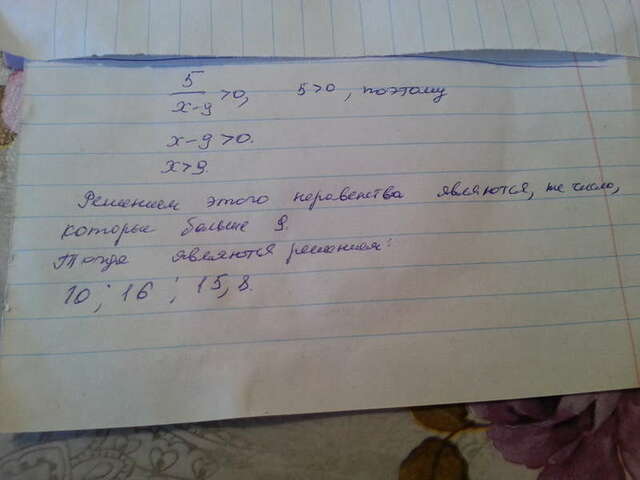 5/(x-9) >0, 5>0, поэтому
x-9>0.
x>9.
Решением этого неравенства являются, те числа,
которые больше 9.
Тогда являются решением:
10; 16; 15,8.